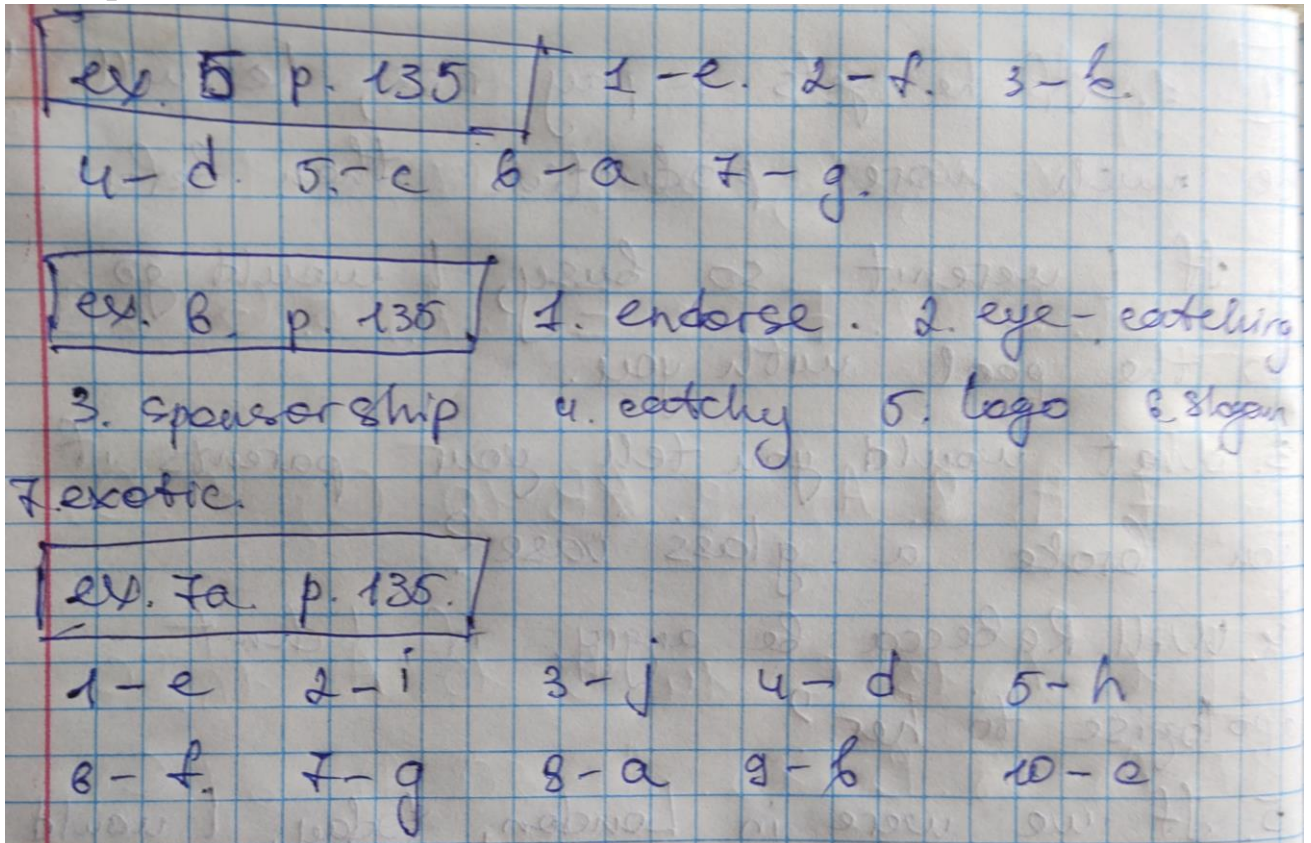 ex. 5 p. 135 1 - e. 2 - f. 3 - b.
4 - d. 5. - c 6 - a 7 - g.
ex. 6. p. 135. 1. endorse. 2. eye-catching
3. sponsorship 4. catchy 5. logo 6. slogan
7. exotic.
ex. 7a p. 135.
1 - e 2 - i 3 - j 4 - d 5 - h
6 - f. 7 - g 8 - a 9 - b 10 - c